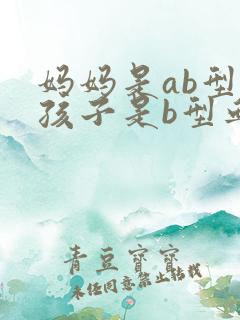 妈妈是ab型
孩子是b型
青豆宝宝
未经同意禁止转载